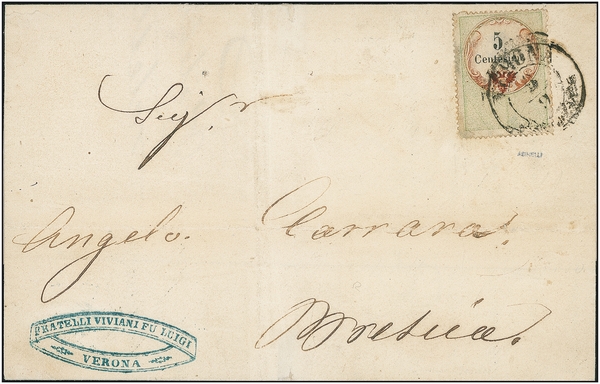 5
Centesimi
VERONA
Sig.r
Angelo. Carrara.
FRATELLI VIVIANI FU LUIGI
VERONA